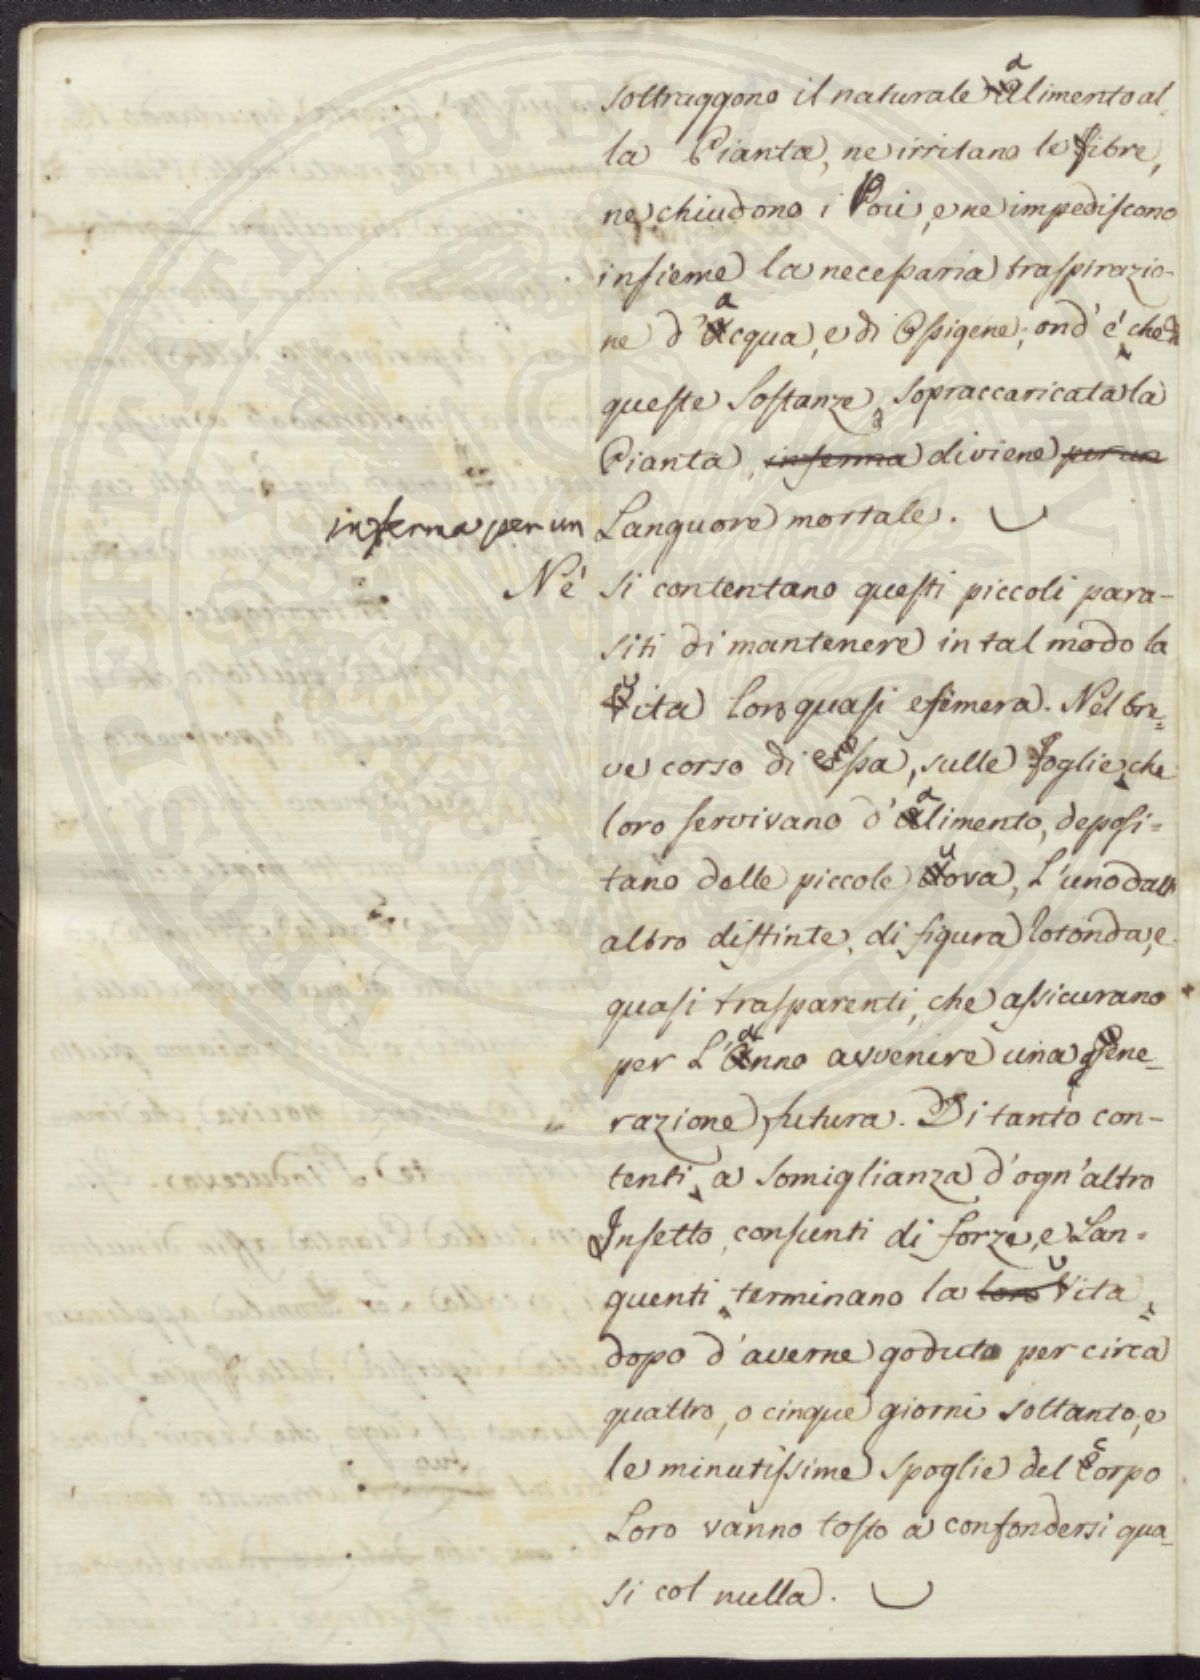 sottraggono il naturale alimento al-
la Pianta, ne irritano le fibre,
ne chiudono i Pori, e ne impediscono
insieme la necessaria traspirazio-
ne d'acqua, e di Ossigene; ond'è, che di
queste Sostanze sopraccaricata la
Pianta, inferma diviene per un
inferma per un Languore mortale.
Nè si contentano questi piccoli para-
siti di mantenere in tal modo la
vita loro quasi efimera. Nel bre-
ve corso di essa, sulle foglie, che
loro servivano d'alimento, deposi-
tano delle piccole uova, L'uno dall'
altro distinte, di figura rotonda, e
quasi trasparenti, che assicurano
per L'anno avvenire una gene-
razione futura. Di tanto con-
tenti, a somiglianza d'ogn'altro
Insetto, consunti di forze, e Lan-
guenti, terminano la loro vita,
dopo d'averne goduto per circa
quattro, o cinque giorni soltanto, e
le minutissime spoglie del corpo
Loro vanno tosto a confondersi qua-
si col nulla.